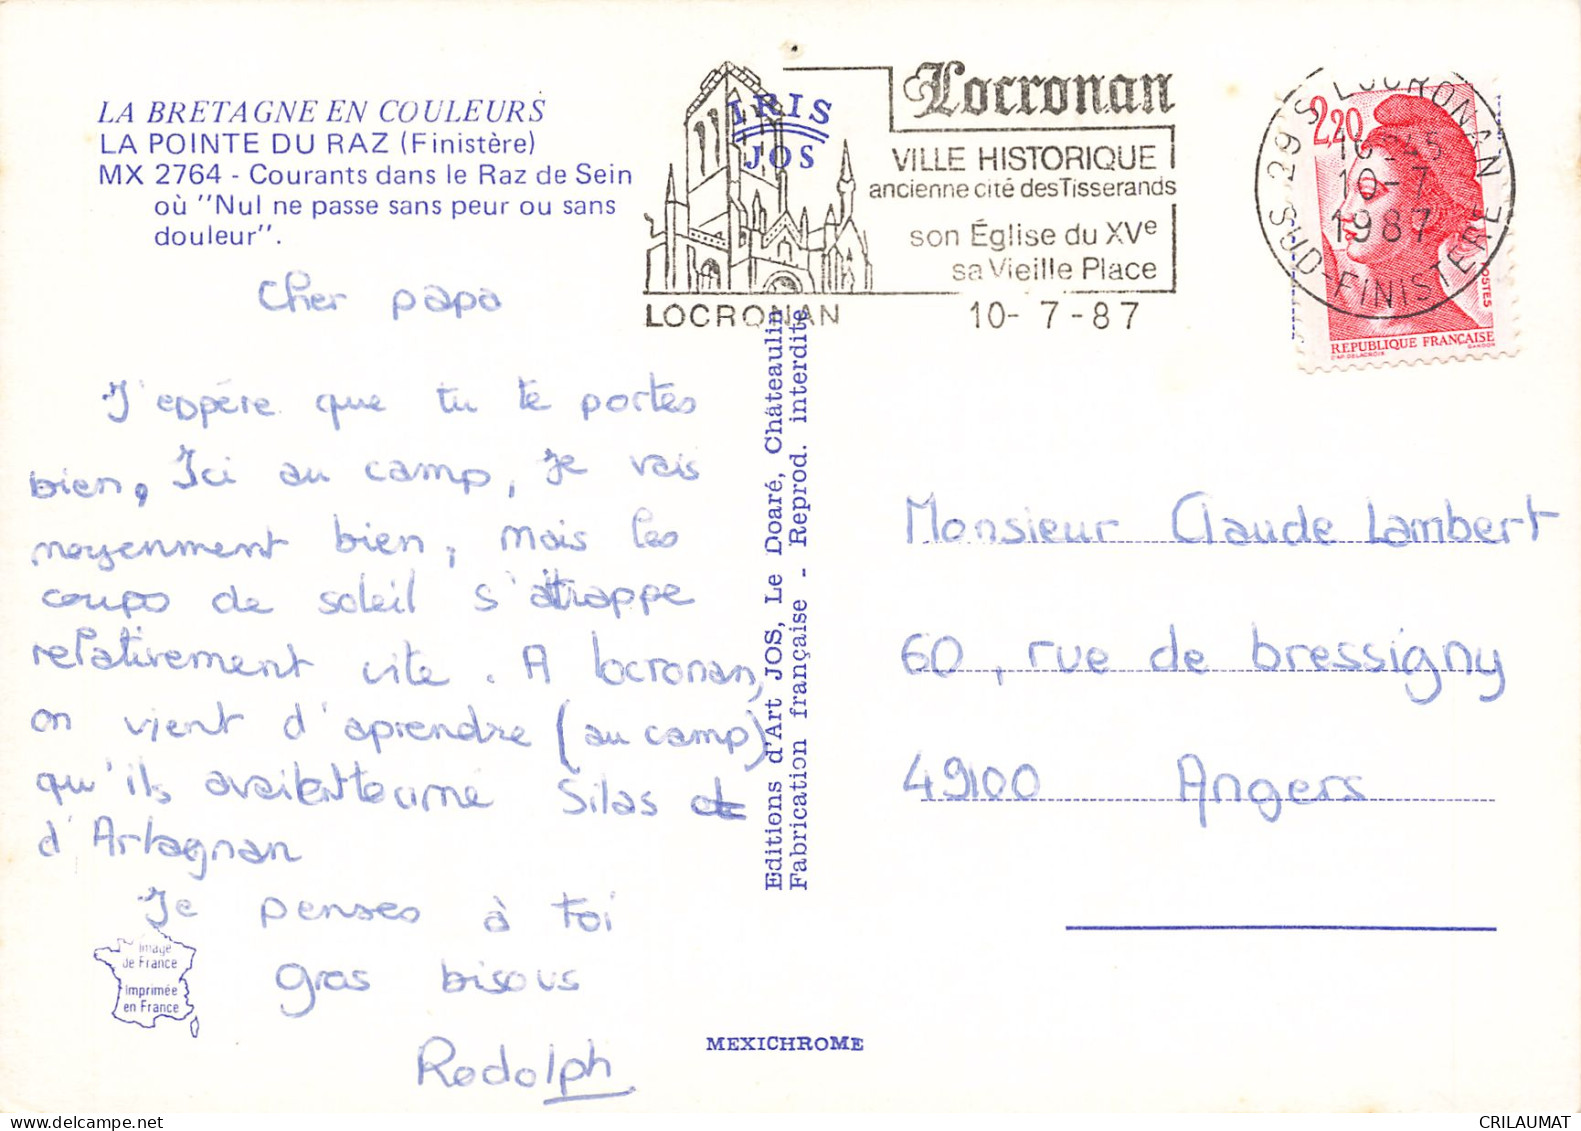 LA BRETAGNE EN COULEURS
LA POINTE DU RAZ (Finistère)
MX 2764 - Courants dans le Raz de Sein
où "Nul ne passe sans peur ou sans
douleur".
Cher papa
J'eppére que tu te portes
bien, Ici au camp, je vais
moyenment bien, mais les
coups de soleil s'attrappe
relativement vite. A locronan,
on vient d'aprendre (au camp)
qu'ils avait tourné Silas
d'Artagnan
Je penses à toi
gros bisous
Rodolph
Image
de France
Imprimée
en France
IRIS
JOS
LOCRONAN
Locronan
VILLE HISTORIQUE
ancienne cité des Tisserands
son Église du XVe
sa Vieille Place
10- 7 -87
Editions d'Art JOS, Le Doaré, Châteaulin
Fabrication française - Reprod. interdite
MEXICHROME
29 S LOCRONAN
16-45
10-7
1987
SUD-FINISTERE
2,20
POSTES
REPUBLIQUE FRANÇAISE
D'AP. DELACROIX
GANDON
Monsieur Claude Lambert
60, rue de bressigny
49100 Angers
CRILAUMAT